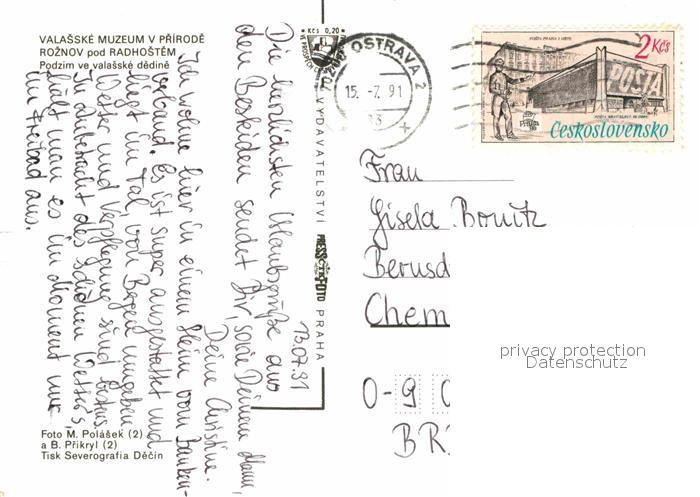 VALAŠSKÉ MUZEUM V PŘÍRODĚ
ROŽNOV pod RADHOŠTĚM
Podzim ve valašské dědině
13.07.91
Die herzlichsten Urlaubsgrüße aus
den Beskiden sendet Dir, sowie Deinem Mann,
Deine Christine.
Ich wohne hier in einem Heim vom Banken-
verband. Es ist super ausgestattet und
liegt im Tal, von Bergen umgeben.
Wetter und Verpflegung sind bestens.
In Anbetracht des schönen Wetters,
hält man es im Moment nur
im Freibad aus.
Foto M. Polášek (2)
a B. Přikryl (2)
Tisk Severografia Děčín
Kčs 0,20
VYDAVATELSTVÍ PRESSFOTO PRAHA
ČTK
OSTRAVA 2
15. -7. 91
2 Kčs
POŠTA
Československo
Frau
Gisela Bonitz
Berusd
Chem
O-9 0
BR
privacy protection
Datenschutz